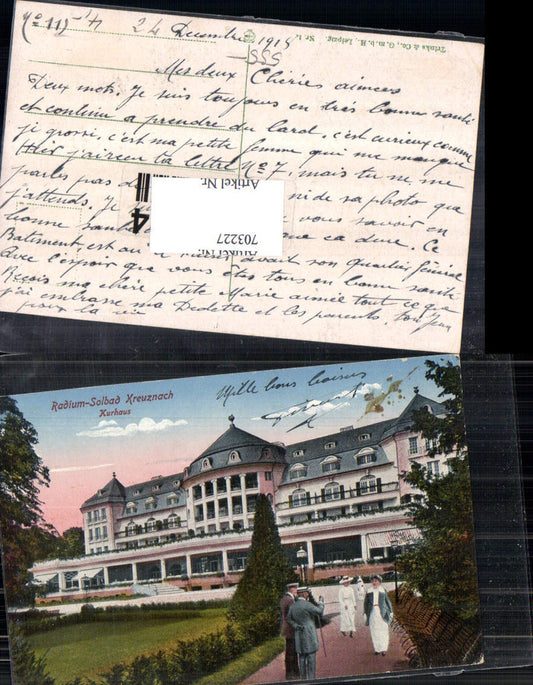 (No 11) 24 Decembre 1918
Trinks & Co., G.m.b.H., Leipzig. Nr 1.
555
Mes deux Chéries aimées
Deux mots. Je suis toujours en très bonne santé
et continu a prendre du lard, c'est curieux comme
je grossi, c'est ma petite femme qui me manque
Hier j'ai reçu ta lettre No 7, mais tu ne me
parles pas de ni de sa photo que
j'attends. Je vous savoir en
bonne santé que ca dure. Ce
Batiment, est ou avait son quartier Général
Avec l'espoir que vous êtes tous en bonne santé
Reçois ma chère petite Marie aimée tout ce que
j'ai embrasse ma Dedette et les parents. Ton Jeux
pour la vie
4
Artikel Nr.
703227
Artikel Nr.
Mille bons baisers
Radium-Solbad Kreuznach
Kurhaus